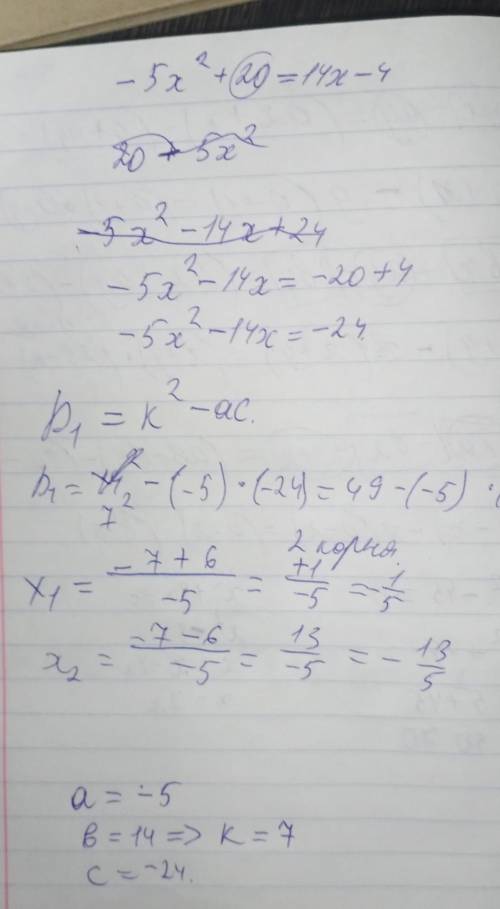 -5x² + 20 = 14x - 4
20 - 5x²
-5x² - 14x + 24
-5x² - 14x = -20 + 4
-5x² - 14x = -24.
D₁ = k² - ac.
D₁ = 7² - (-5) · (-24) = 49 - (-5) · (
2 корня.
x₁ = (-7 + 6)/(-5) = (+1)/(-5) = -1/5
x₂ = (-7 - 6)/(-5) = 13/(-5) = -13/5
a = -5
в = 14 => k = 7
c = -24.